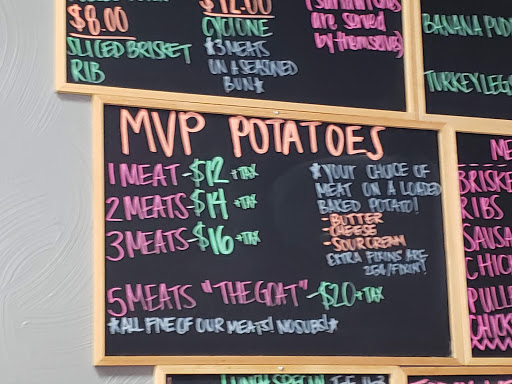 $8.00
SLICED BRISKET
RIB
$12.00
CYCLONE
*3 MEATS
ON A SEASONED
BUN*
are served
by themselves)
BANANA PUD
TURKEY LEGS
MVP POTATOES
1 MEAT-$12 +TAX
2 MEATS-$14 +TAX
3 MEATS-$16 +TAX
*YOUR CHOICE OF
MEAT ON A LOADED
BAKED POTATO!
-BUTTER
-CHEESE
-SOUR CREAM
EXTRA FIXINS ARE
25¢/FIXIN'!
5 MEATS "THE GOAT"-$20+TAX
*ALL FIVE OF OUR MEATS! NO SUBS!*
ME
BRISKE
RIBS
SAUSA
CHIC
PULL
CHICK
LUNCH SPECIAL